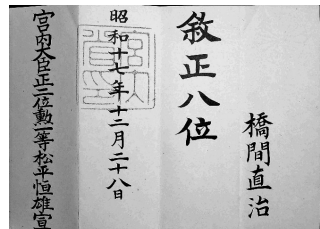 橋間直治
敘正八位
昭和十七年十二月二十八日
宮内大臣正二位勲一等松平恒雄宣